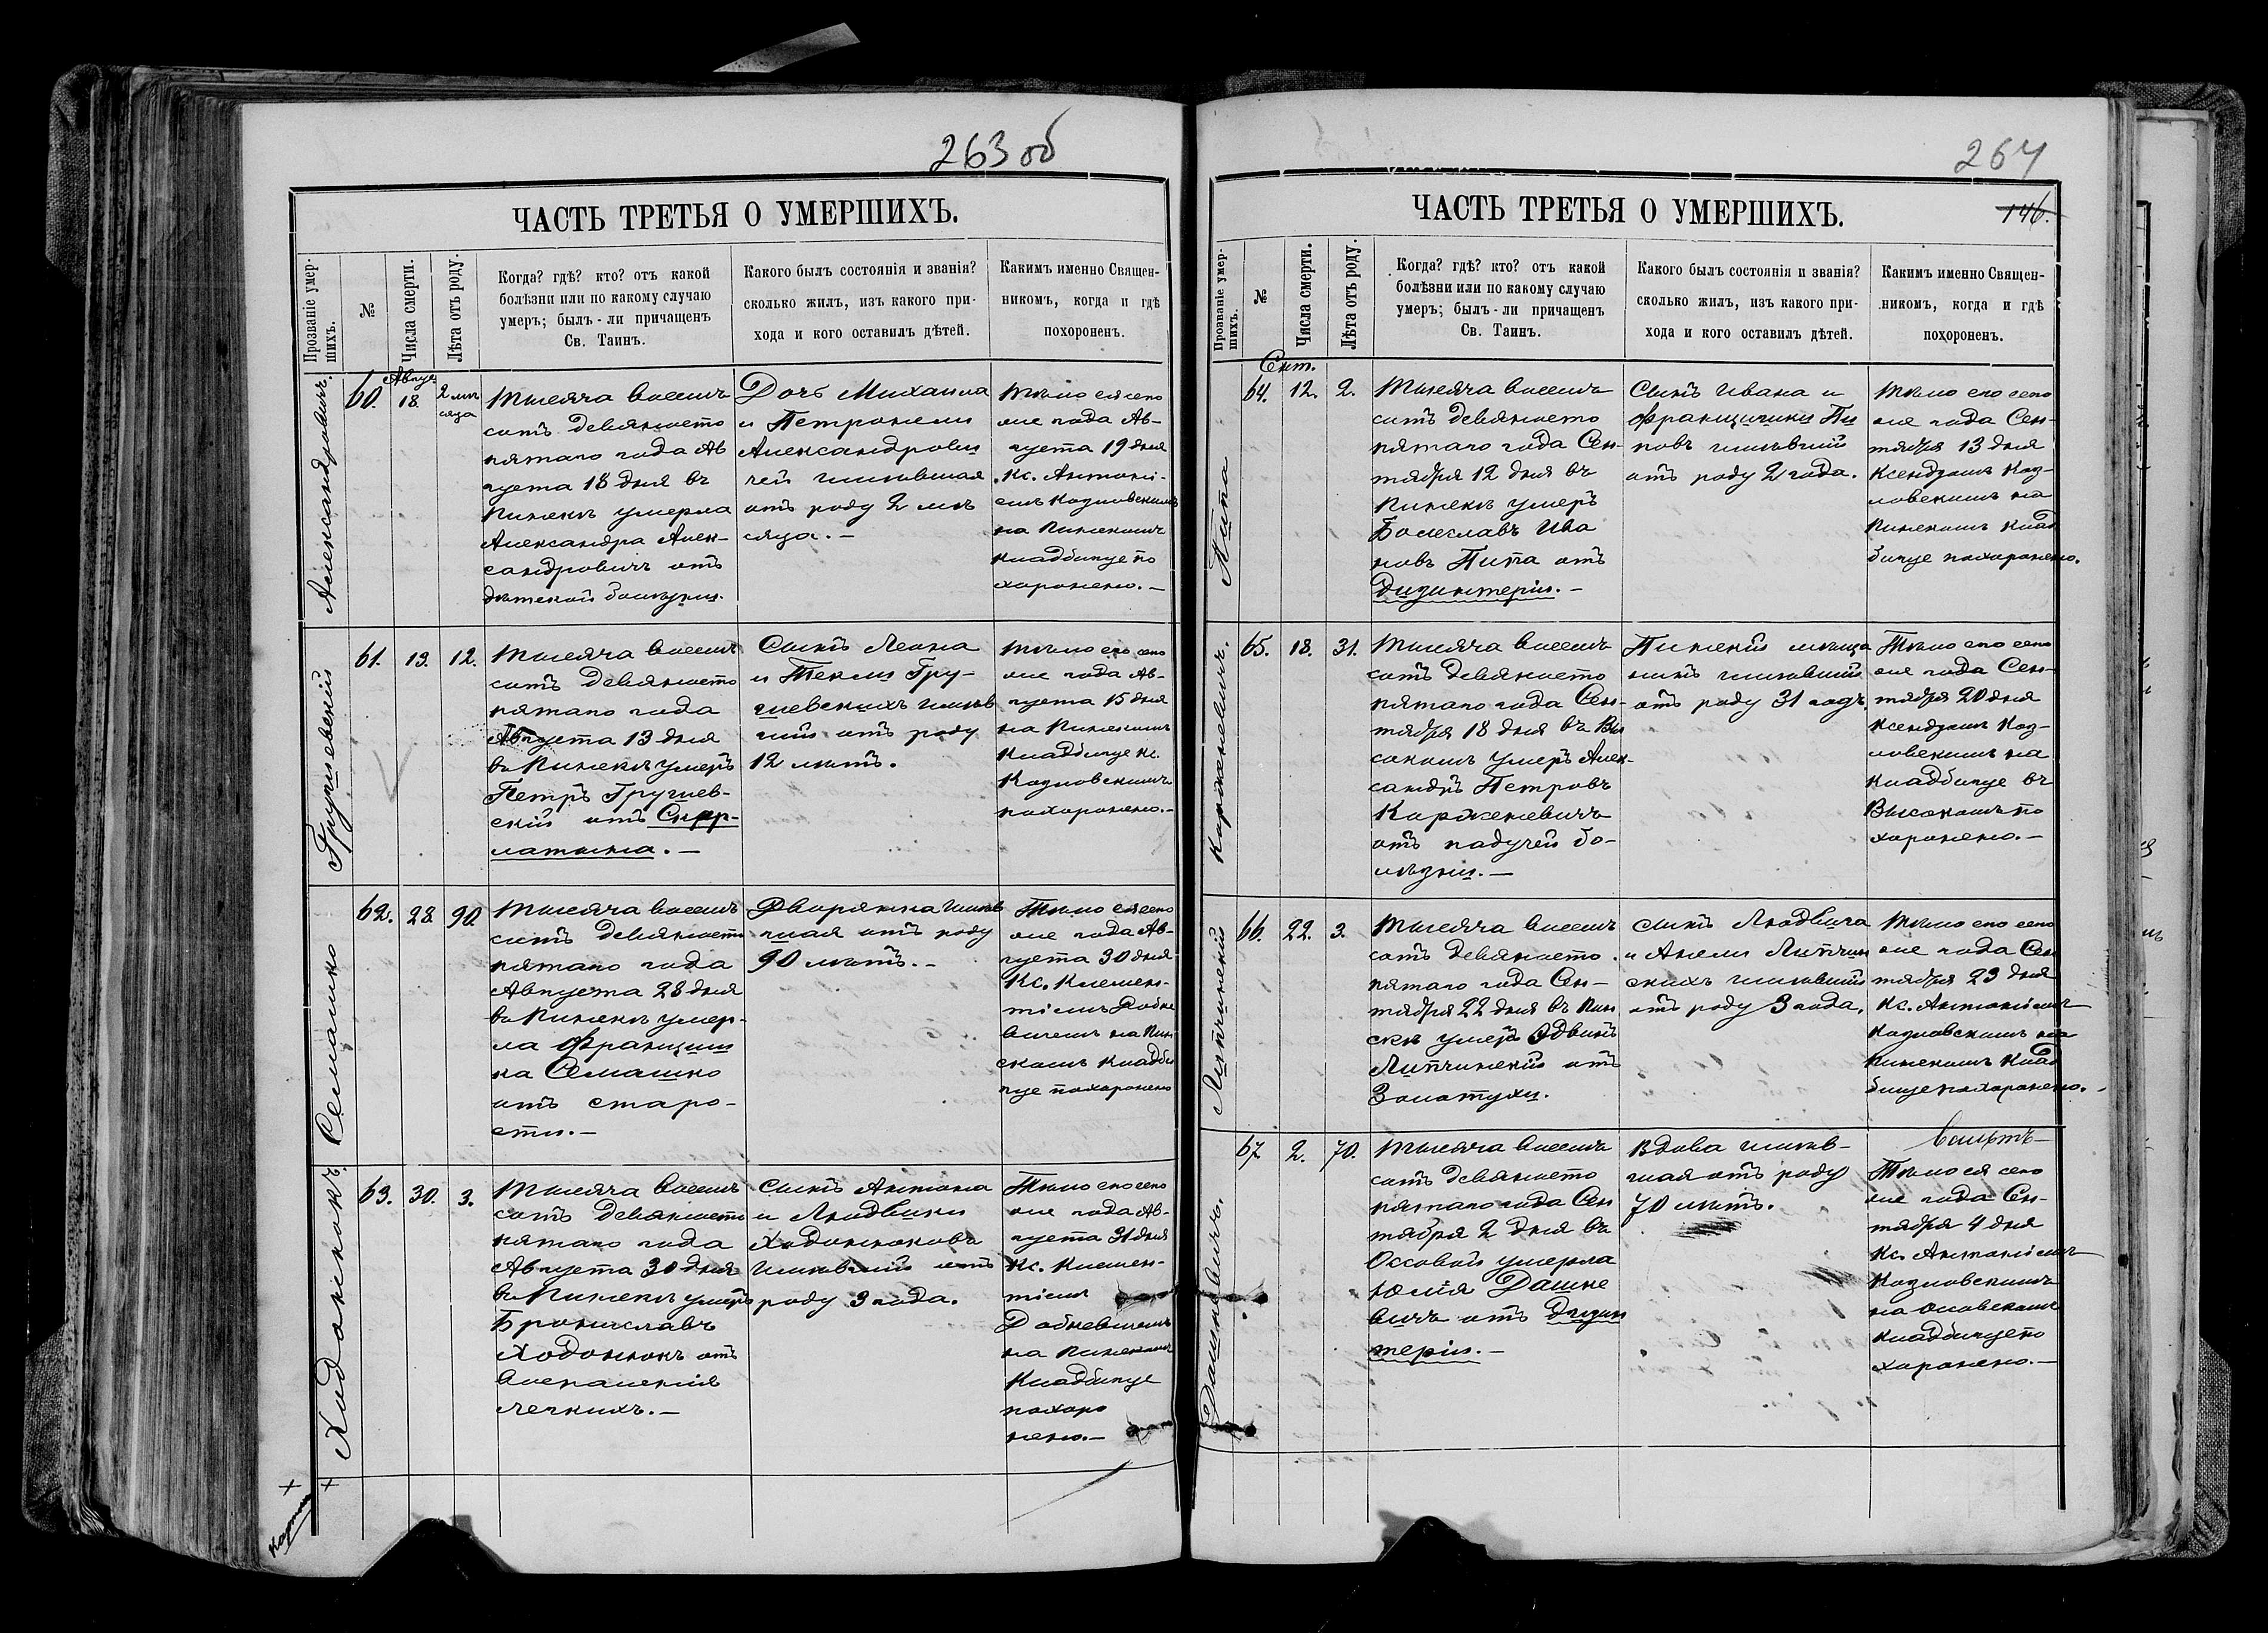 263 об
ЧАСТЬ ТРЕТЬЯ О УМЕРШИХЪ.
Прозваніе умер-
шихъ.
№
Числа смерти.
Лѣта отъ роду.
Когда? гдѣ? кто? отъ какой
болѣзни или по какому случаю
умеръ; былъ-ли причащенъ
Св. Таинъ.
Какого былъ состоянія и званія?
сколько жилъ, изъ какого при-
хода и кого оставилъ дѣтей.
Какимъ именно Священ-
никомъ, когда и гдѣ
похороненъ.
Александровичъ.
60.
Авгус.
18.
2 мѣ
сяца
Тысяча восемь
сотъ девяносто
пятаго года Ав
густа 18 дня въ
Пинскѣ умерла
Александра Алек-
сандровичъ отъ
дѣтской болѣзни.
Дочь Михаила
и Петронели
Александрови
чей жившая
отъ роду 2 мѣ
сяца. —
Тѣло ея сего
же года Ав-
густа 19 дня
Кс. Антоні-
емъ Козловскимъ
на Пинскомъ
кладбищѣ по
хоронено. —
Гружевскій
61.
13.
12.
Тысяча восемь
сотъ девяносто
пятаго года
Августа 13 дня
въ Пинскѣ умеръ
Петръ Гружев-
скій отъ Скар-
латына. —
Сынъ Леона
и Текли Гру-
жевскихъ жив
шій отъ роду
12 лѣтъ.
Тѣло его сего
же года Ав-
густа 15 дня
на Пинскомъ
кладбищѣ Кс.
Козловскимъ
похоронено. —
Семашко
62.
28
90.
Тысяча восемь
сотъ девяносто
пятаго года
Августа 28 дня
въ Пинскѣ умер-
ла Франциш
ка Семашко
отъ старо-
сти. —
Дворянка жив
шая отъ роду
90 лѣтъ. —
Тѣло ея сего
же года Ав-
густа 30 дня
Кс. Клемен-
тіемъ Добке
вичемъ на Пин
скомъ кладби
щѣ похоронено
Ходонюкъ.
63.
30.
3.
Тысяча восемь
сотъ девяносто
пятаго года
Августа 30 дня
въ Пинскѣ умеръ
Брониславъ
Ходонюкъ отъ
воспаленія
легкихъ. —
Сынъ Антона
и Людвики
Ходонюковъ
жившій отъ
роду 3 года.
Тѣло его сего
же года Ав-
густа 31 дня
Кс. Клемен-
тіемъ
Добкевичемъ
на Пинскомъ
кладбищѣ
похоро
нено. —
264
146.
ЧАСТЬ ТРЕТЬЯ О УМЕРШИХЪ.
Прозваніе умер-
шихъ.
№
Числа смерти.
Лѣта отъ роду.
Когда? гдѣ? кто? отъ какой
болѣзни или по какому случаю
умеръ; былъ-ли причащенъ
Св. Таинъ.
Какого былъ состоянія и званія?
сколько жилъ, изъ какого при-
хода и кого оставилъ дѣтей.
Какимъ именно Священ-
никомъ, когда и гдѣ
похороненъ.
Пипа
64.
Сент.
12.
2.
Тысяча восемь
сотъ девяносто
пятаго года Сен-
тября 12 дня въ
Пинскѣ умеръ
Болеславъ Ива
новъ Пипа отъ
Дизинтеріи. —
Сынъ Ивана и
Францишки Пи
повъ жившій
отъ роду 2 года.
Тѣло его сего
же года Сен-
тября 13 дня
Ксендзомъ Коз-
ловскимъ на
Пинскомъ клад
бищѣ похоронено.
Корженевичъ.
65.
18.
31.
Тысяча восемь
сотъ девяносто
пятаго года Сен-
тября 18 дня въ Вы
сокомъ умеръ Алек-
сандръ Петровъ
Корженевичъ
отъ падучей бо-
лѣзни. —
Пинскій мѣща
нинъ жившій
отъ роду 31 годъ.
Тѣло его сего
же года Сен-
тября 20 дня
Ксендзомъ Коз-
ловскимъ на
кладбищѣ въ
Высокомъ по
хоронено. —
Липчинскій
66.
22.
3.
Тысяча восемь
сотъ девяносто
пятаго года Сен-
тября 22 дня въ Пин
скѣ умеръ Эдвинъ
Липчинскій отъ
Золотухи.
Сынъ Людвига
и Анели Липчин
скихъ жившій
отъ роду 3 года.
Тѣло его сего
же года Сен
тября 23 дня
Кс. Антоніемъ
Козловскимъ на
Пинскомъ клад
бищѣ похоронено. —
Дашкевичъ.
67
2.
70.
Тысяча восемь
сотъ девяносто
пятаго года Сен
тября 2 дня въ
Оссовой умерла
Юлія Дашке
вичъ отъ Дизин
теріи. —
Вдова жив-
шая отъ роду
70 лѣтъ.
Тѣло ея сего
же года Сен-
тября 4 дня
Кс. Антоніемъ
Козловскимъ
на Осовскомъ
кладбищѣ по
хоронено. —